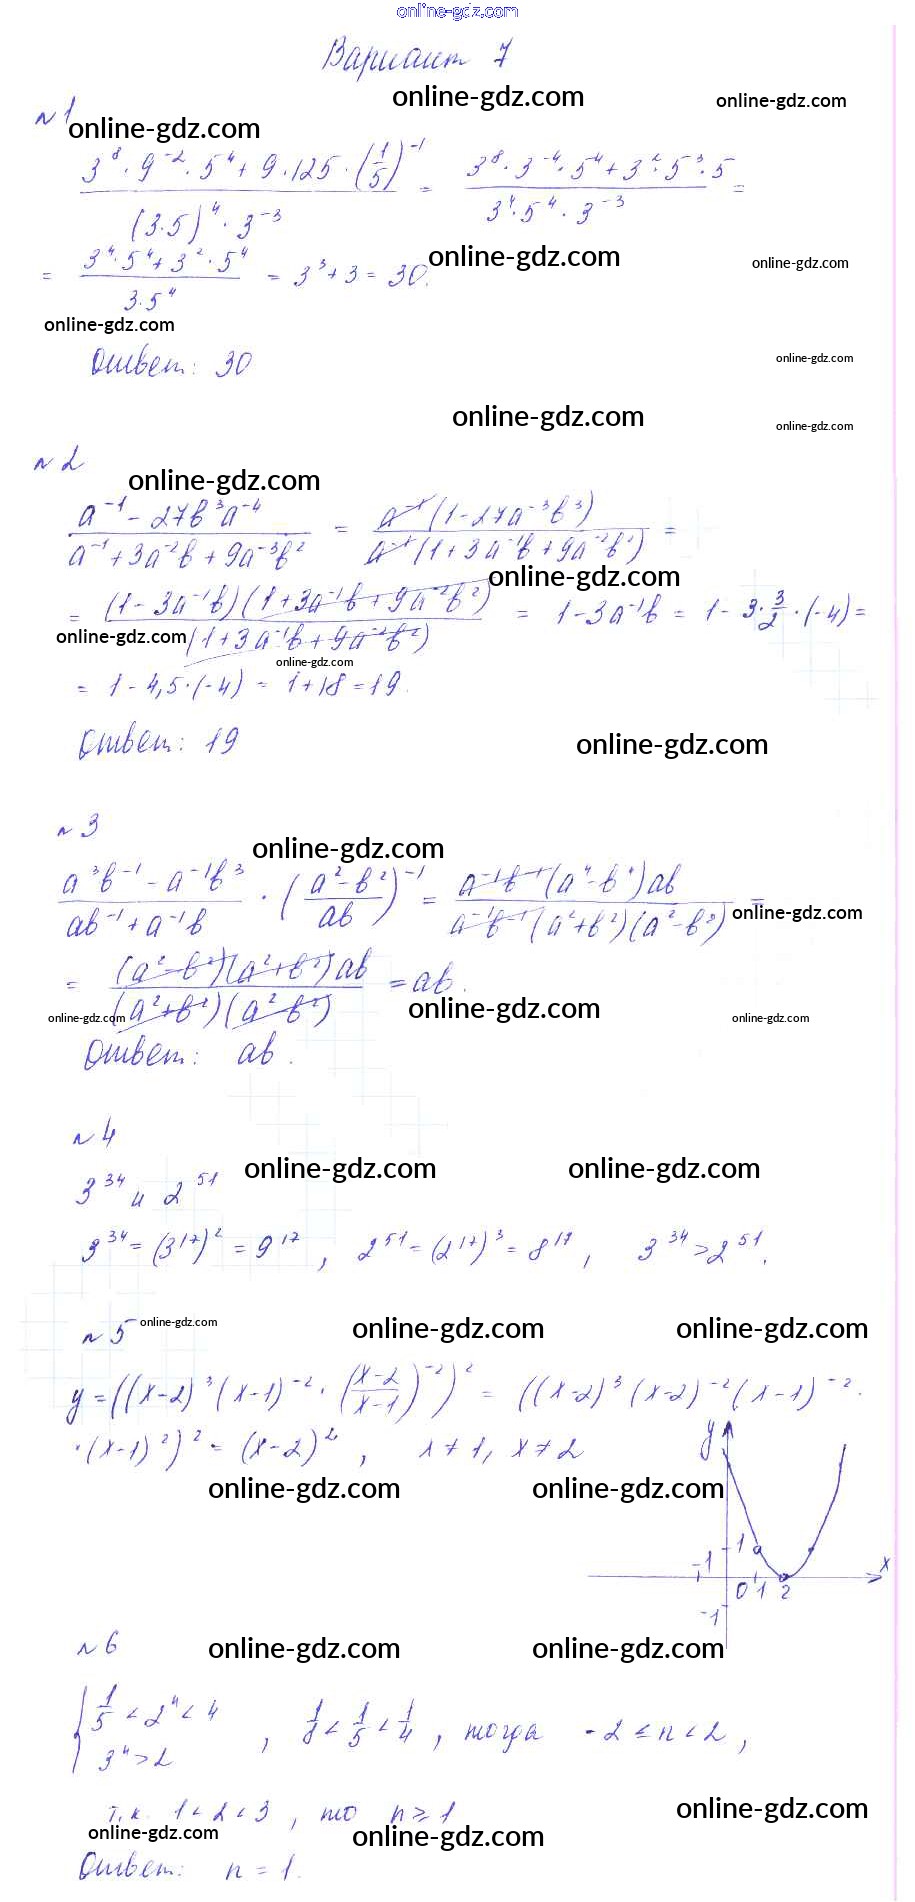 online-gdz.com
Вариант 7
online-gdz.com online-gdz.com
№1
online-gdz.com
(3^8 · 9^-2 · 5^4 + 9 · 125 · (1/5)^-1) / ((3·5)^4 · 3^-3) = (3^8 · 3^-4 · 5^4 + 3^2 · 5^3 · 5) / (3^4 · 5^4 · 3^-3) =
= (3^4 · 5^4 + 3^2 · 5^4) / (3 · 5^4) = 3^3 + 3 = 30.
online-gdz.com online-gdz.com
online-gdz.com
Ответ: 30
online-gdz.com
online-gdz.com online-gdz.com
№2
online-gdz.com
(a^-1 - 27b^3a^-4) / (a^-1 + 3a^-2b + 9a^-3b^2) = (a^-1(1 - 27a^-3b^3)) / (a^-1(1 + 3a^-1b + 9a^-2b^2)) =
online-gdz.com
= ((1 - 3a^-1b)(1 + 3a^-1b + 9a^-2b^2)) / (1 + 3a^-1b + 9a^-2b^2) = 1 - 3a^-1b = 1 - 3 · 3/2 · (-4) =
online-gdz.com
online-gdz.com
= 1 - 4,5 · (-4) = 1 + 18 = 19.
Ответ: 19
online-gdz.com
№3
online-gdz.com
(a^3b^-1 - a^-1b^3) / (ab^-1 + a^-1b) · ((a^2 - b^2) / ab)^-1 = (a^-1b^-1(a^4 - b^4)ab) / (a^-1b^-1(a^2 + b^2)(a^2 - b^2)) =
online-gdz.com
= ((a^2 - b^2)(a^2 + b^2)ab) / ((a^2 + b^2)(a^2 - b^2)) = ab.
online-gdz.com online-gdz.com online-gdz.com
Ответ: ab.
№4
online-gdz.com online-gdz.com
3^34 и 2^51
3^34 = (3^17)^2 = 9^17, 2^51 = (2^17)^3 = 8^17, 3^34 > 2^51.
№5
online-gdz.com online-gdz.com online-gdz.com
y = ((x-2)^3 (x-1)^-2 · ((x-2)/(x-1))^-2)^2 = ((x-2)^3 (x-2)^-2 (x-1)^-2 ·
· (x-1)^2)^2 = (x-2)^2, x ≠ 1, x ≠ 2
y
online-gdz.com online-gdz.com
-1 1 x
0 1 2
-1
№6
online-gdz.com online-gdz.com
{ 1/5 < 2^n < 4
3^n > 2 , 1/8 < 1/5 < 1/4, тогда -2 ≤ n < 2,
т.к. 1 < 2 < 3, то n ≥ 1
online-gdz.com
online-gdz.com online-gdz.com
Ответ: n = 1.